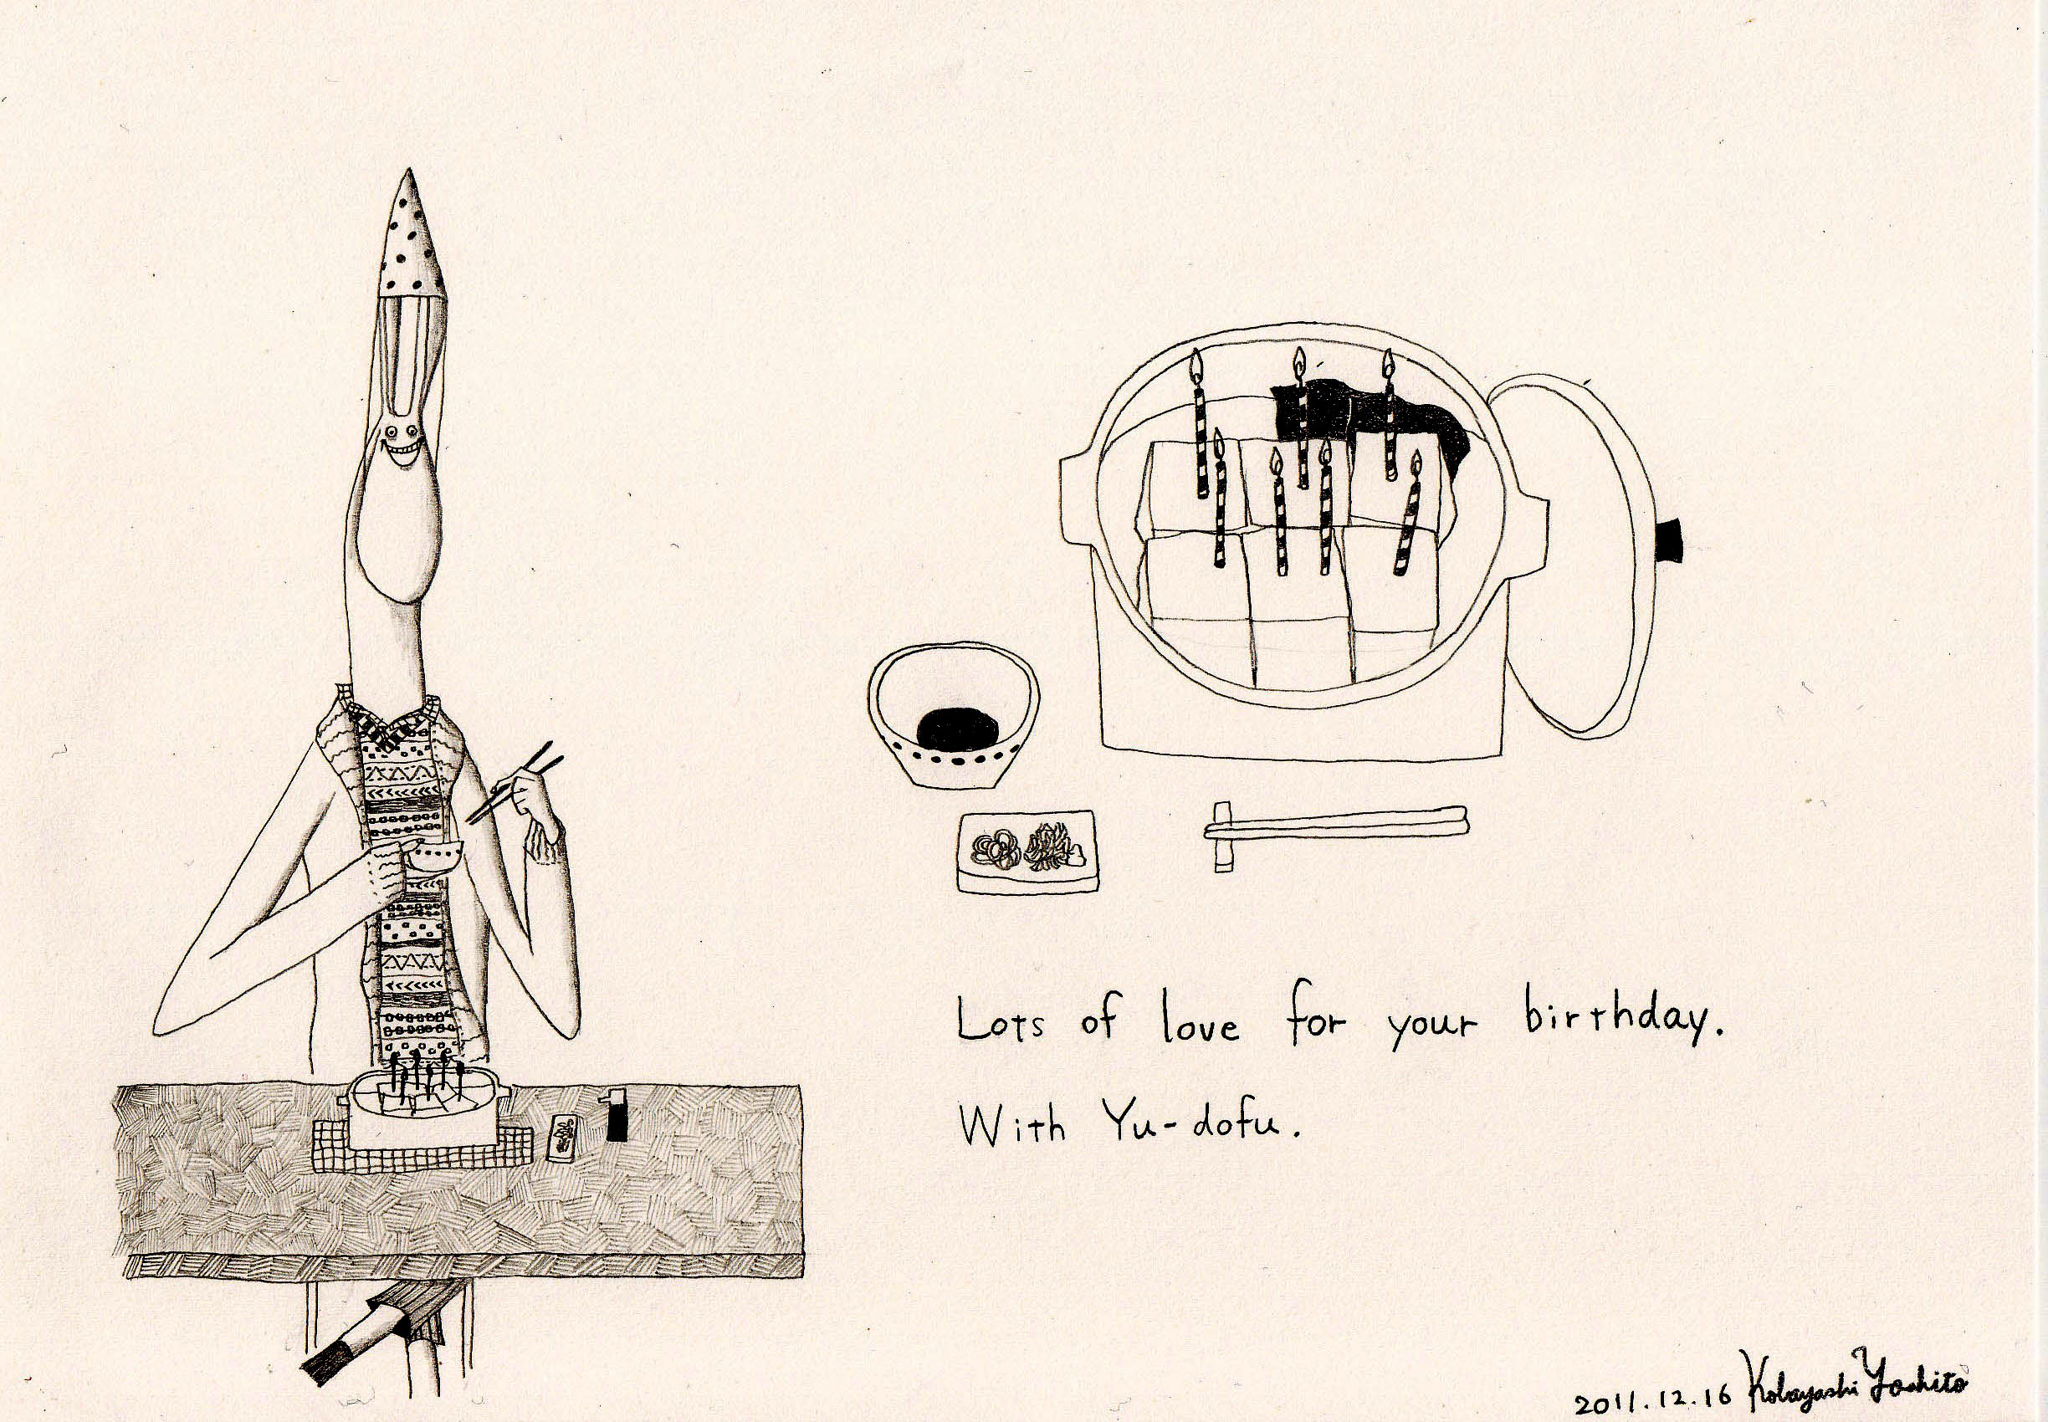 Lots of love for your birthday.
With Yu-dofu.
2011.12.16 Kobayashi Yoshito